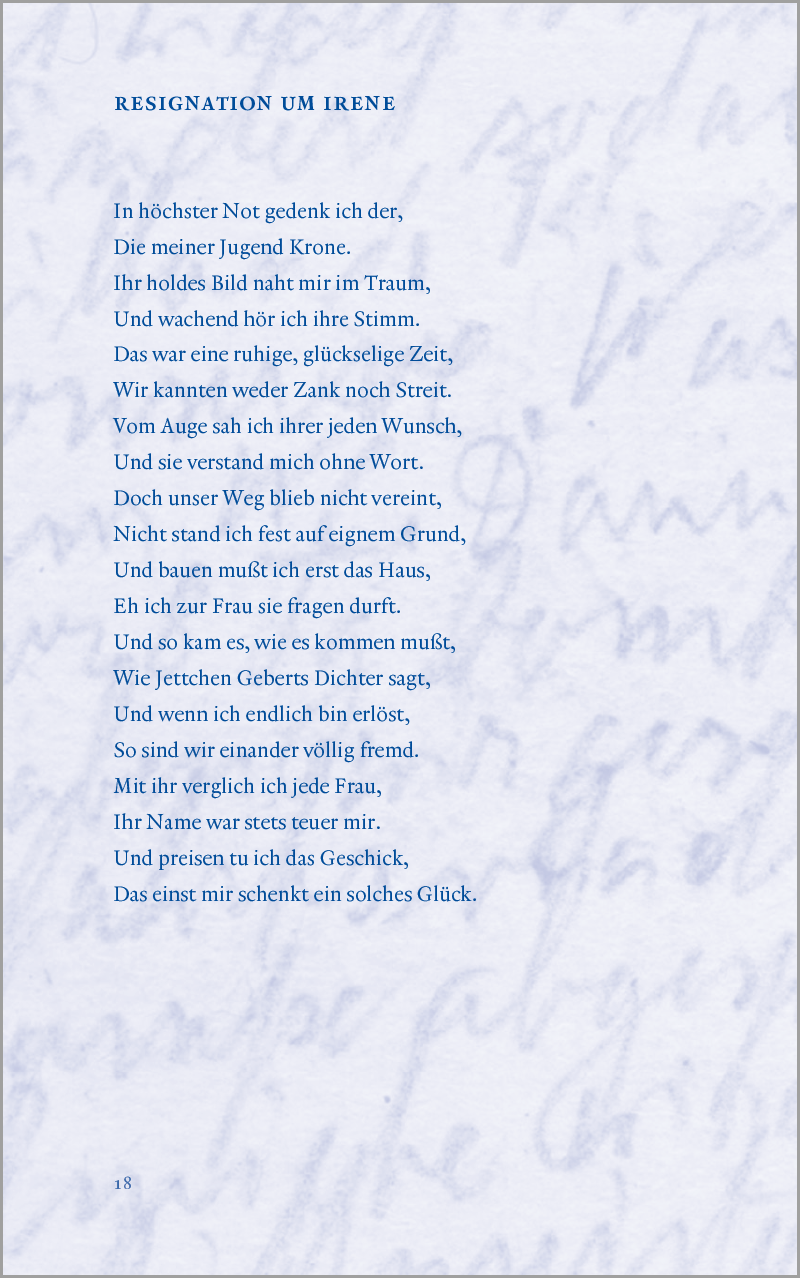 RESIGNATION UM IRENE
In höchster Not gedenk ich der,
Die meiner Jugend Krone.
Ihr holdes Bild naht mir im Traum,
Und wachend hör ich ihre Stimm.
Das war eine ruhige, glückselige Zeit,
Wir kannten weder Zank noch Streit.
Vom Auge sah ich ihrer jeden Wunsch,
Und sie verstand mich ohne Wort.
Doch unser Weg blieb nicht vereint,
Nicht stand ich fest auf eignem Grund,
Und bauen mußt ich erst das Haus,
Eh ich zur Frau sie fragen durft.
Und so kam es, wie es kommen mußt,
Wie Jettchen Geberts Dichter sagt,
Und wenn ich endlich bin erlöst,
So sind wir einander völlig fremd.
Mit ihr verglich ich jede Frau,
Ihr Name war stets teuer mir.
Und preisen tu ich das Geschick,
Das einst mir schenkt ein solches Glück.
18